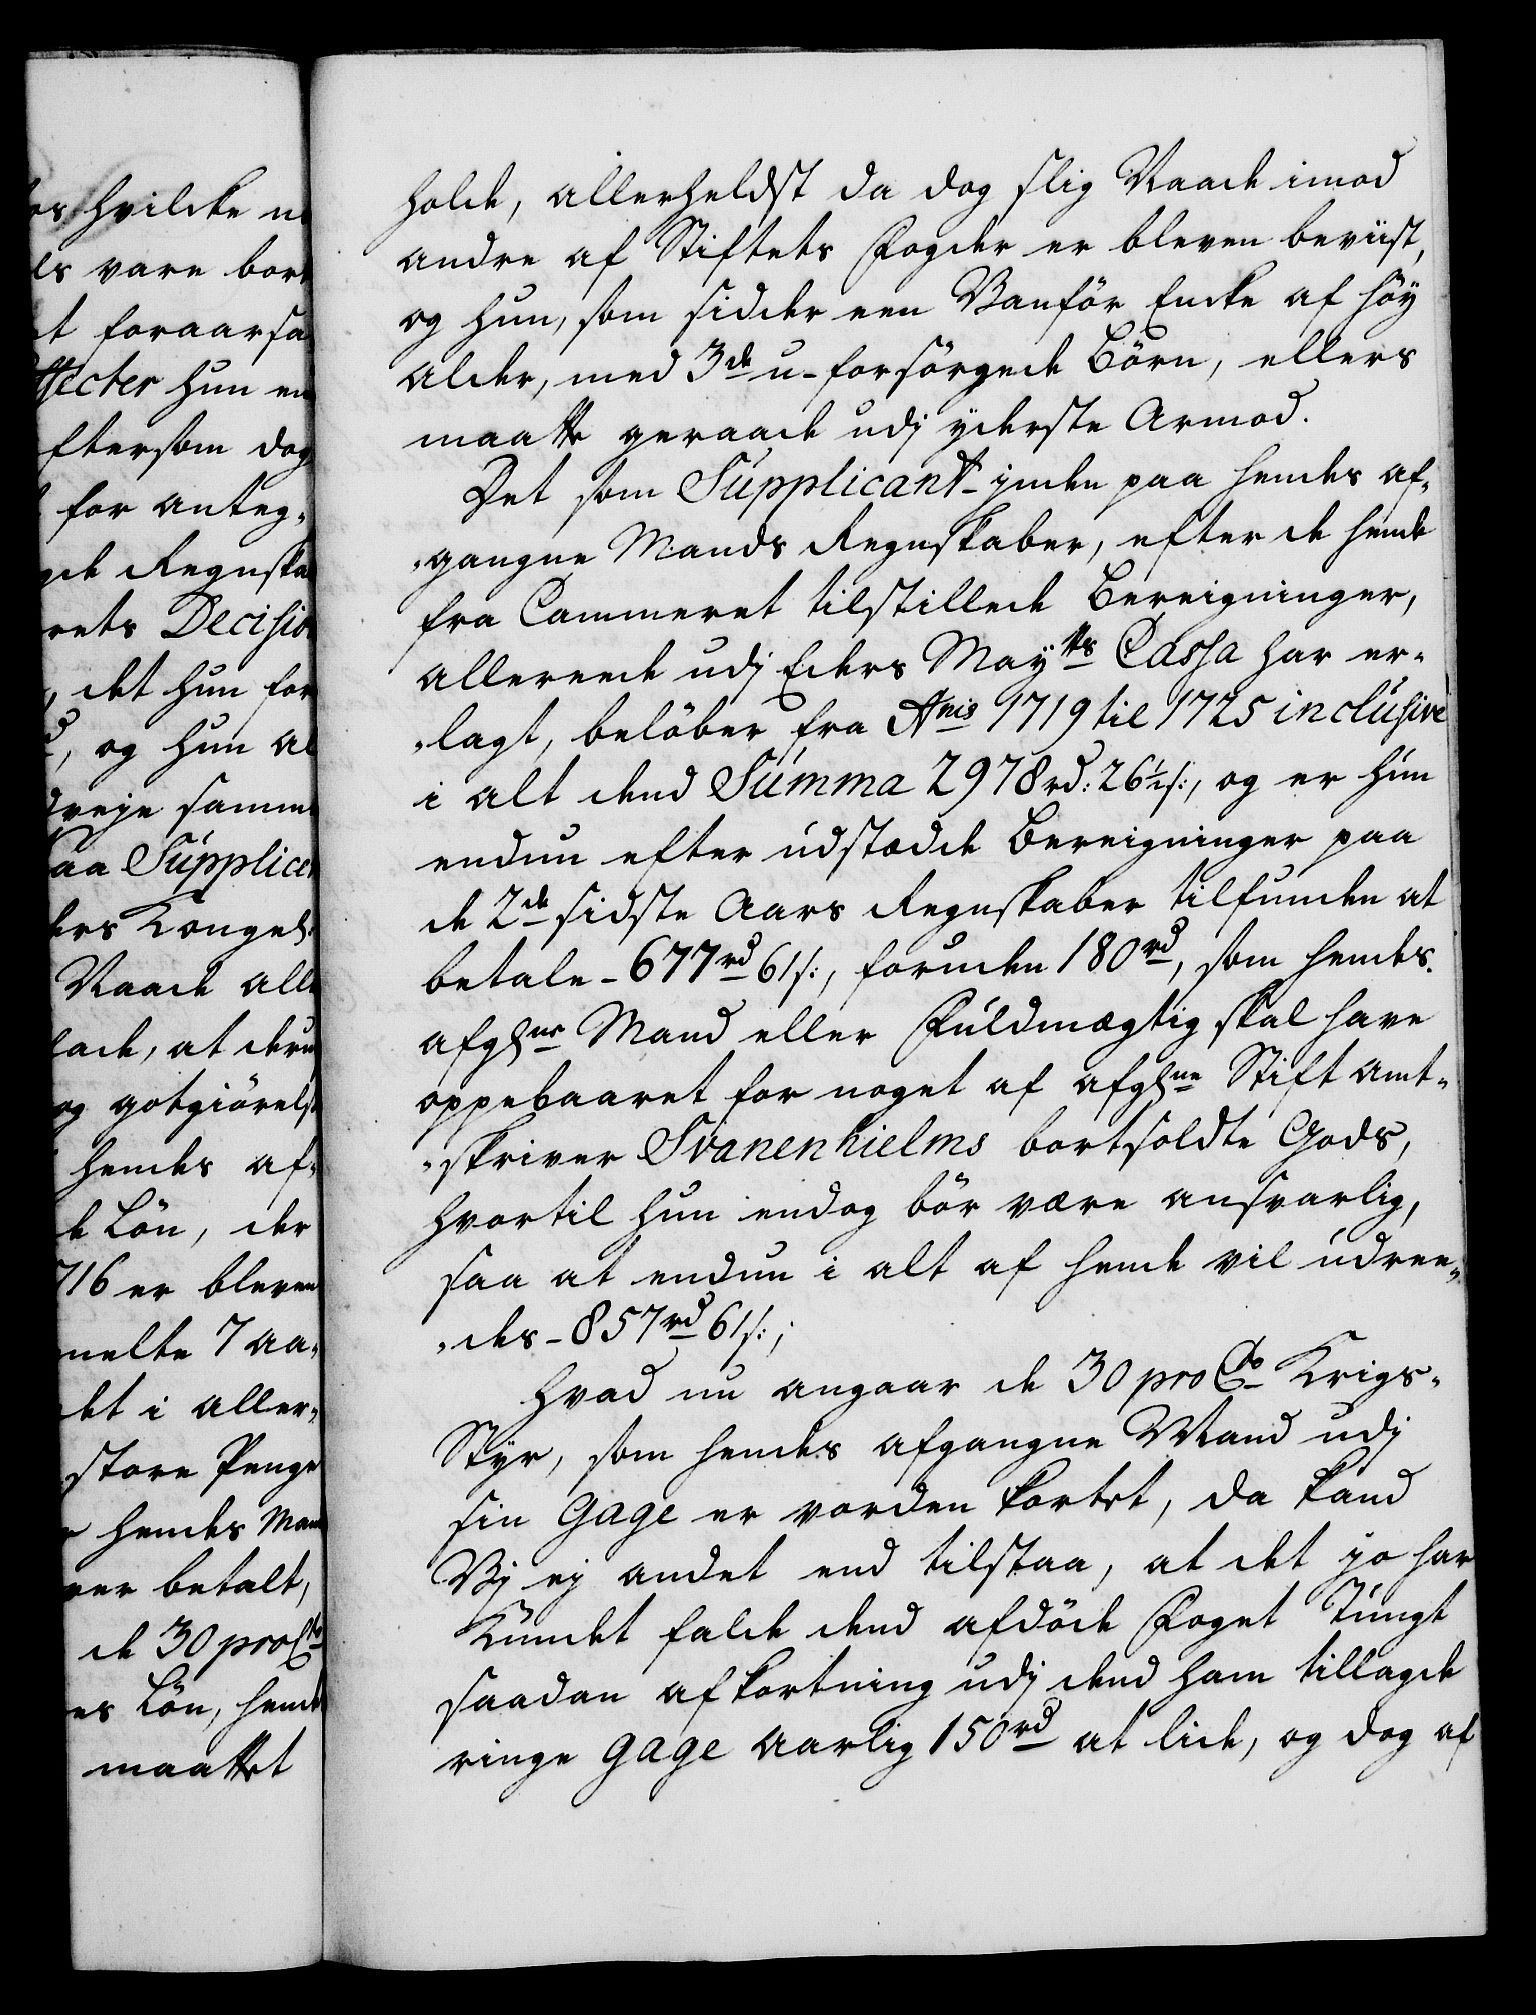 holde, allerheldst da dog slig Naade imod
andre af Stiftets Fogder er bleven beviist,
og hun, som sidder een Vanför Encke af höy
alder, med 3de u-forsörgede Börn, ellers
maatte geraade udj yderste Armod.
Det som Supplicant-inden paa hendes af-
gangne Mands Regnskaber, efter de hende
fra Cammeret tilstillede Bereigninger,
allereede udj Eders Mayts Cassa har er-
lagt, belöber fra Anis 1719 til 1725 inclusive
i alt dend Summa 2978 rd: 26½ s:, og er hun
endnu efter udstædde Bereigninger paa
de 2de sidste Aars Regnskaber tilfunden at
betale - 677 rd 61 s:, foruden 180 rd, som hendes
afgl. Mand eller Fuldmægtig skal have
oppebaaret for noget af afgl. Stift amt-
skriver Svanenhielms bortsoldte Gods,
hvortil hun endog bör være ansvarlig,
saa at endnu i alt af hende vil udree-
des - 857 rd 61 s:;
Hvad nu angaar de 30 pro Cto Krigs-
Styr, som hendes afgangne Mand udj
sin Gage er vorden kortet, da kand
Vj ej andet end tilstaa, at det jo har
Kundet falde dend afdöde Foget Tungt
saadan afkortning udj dend ham tillagde
ringe Gage Aarlig 150 rd at lide, og dog af
hvilcke
vare
hun
eftersom dog
for anteg-
det hun for
og hun
Naade
og
hendes af-
Lön, der
716 er bleven
7 aa-
det i aller-
store Penge
hendes
betalt,
de 30 pro Cto
Lön,
maattet